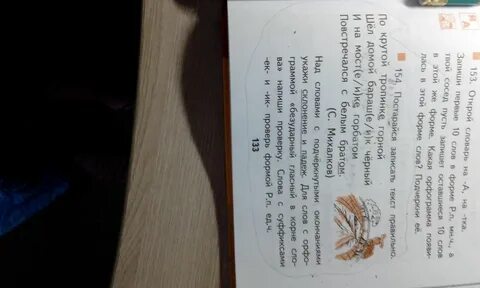 153. Открой словарь на -А, на -тка.
Запиши первые 10 слов в форме Р.п. мн.ч., а
твой сосед пусть запишет оставшиеся 10 слов
в этой же форме. Какая орфограмма появи-
лась в этой форме слов? Подчеркни её.
154. Постарайся записать текст правильно.
По крутой тропинке горной
Шёл домой бараш(е/и)к чёрный
И на мост(е/и)ке горбатом
Повстречался с белым братом.
(С. Михалков)
Над словами с подчёркнутыми окончаниями
укажи склонение и падеж. Для слов с орфо-
граммой «безударный гласный в корне сло-
ва» напиши проверку. Слова с суффиксами
-ек- и -ик- проверь формой Р.п. ед.ч.
133